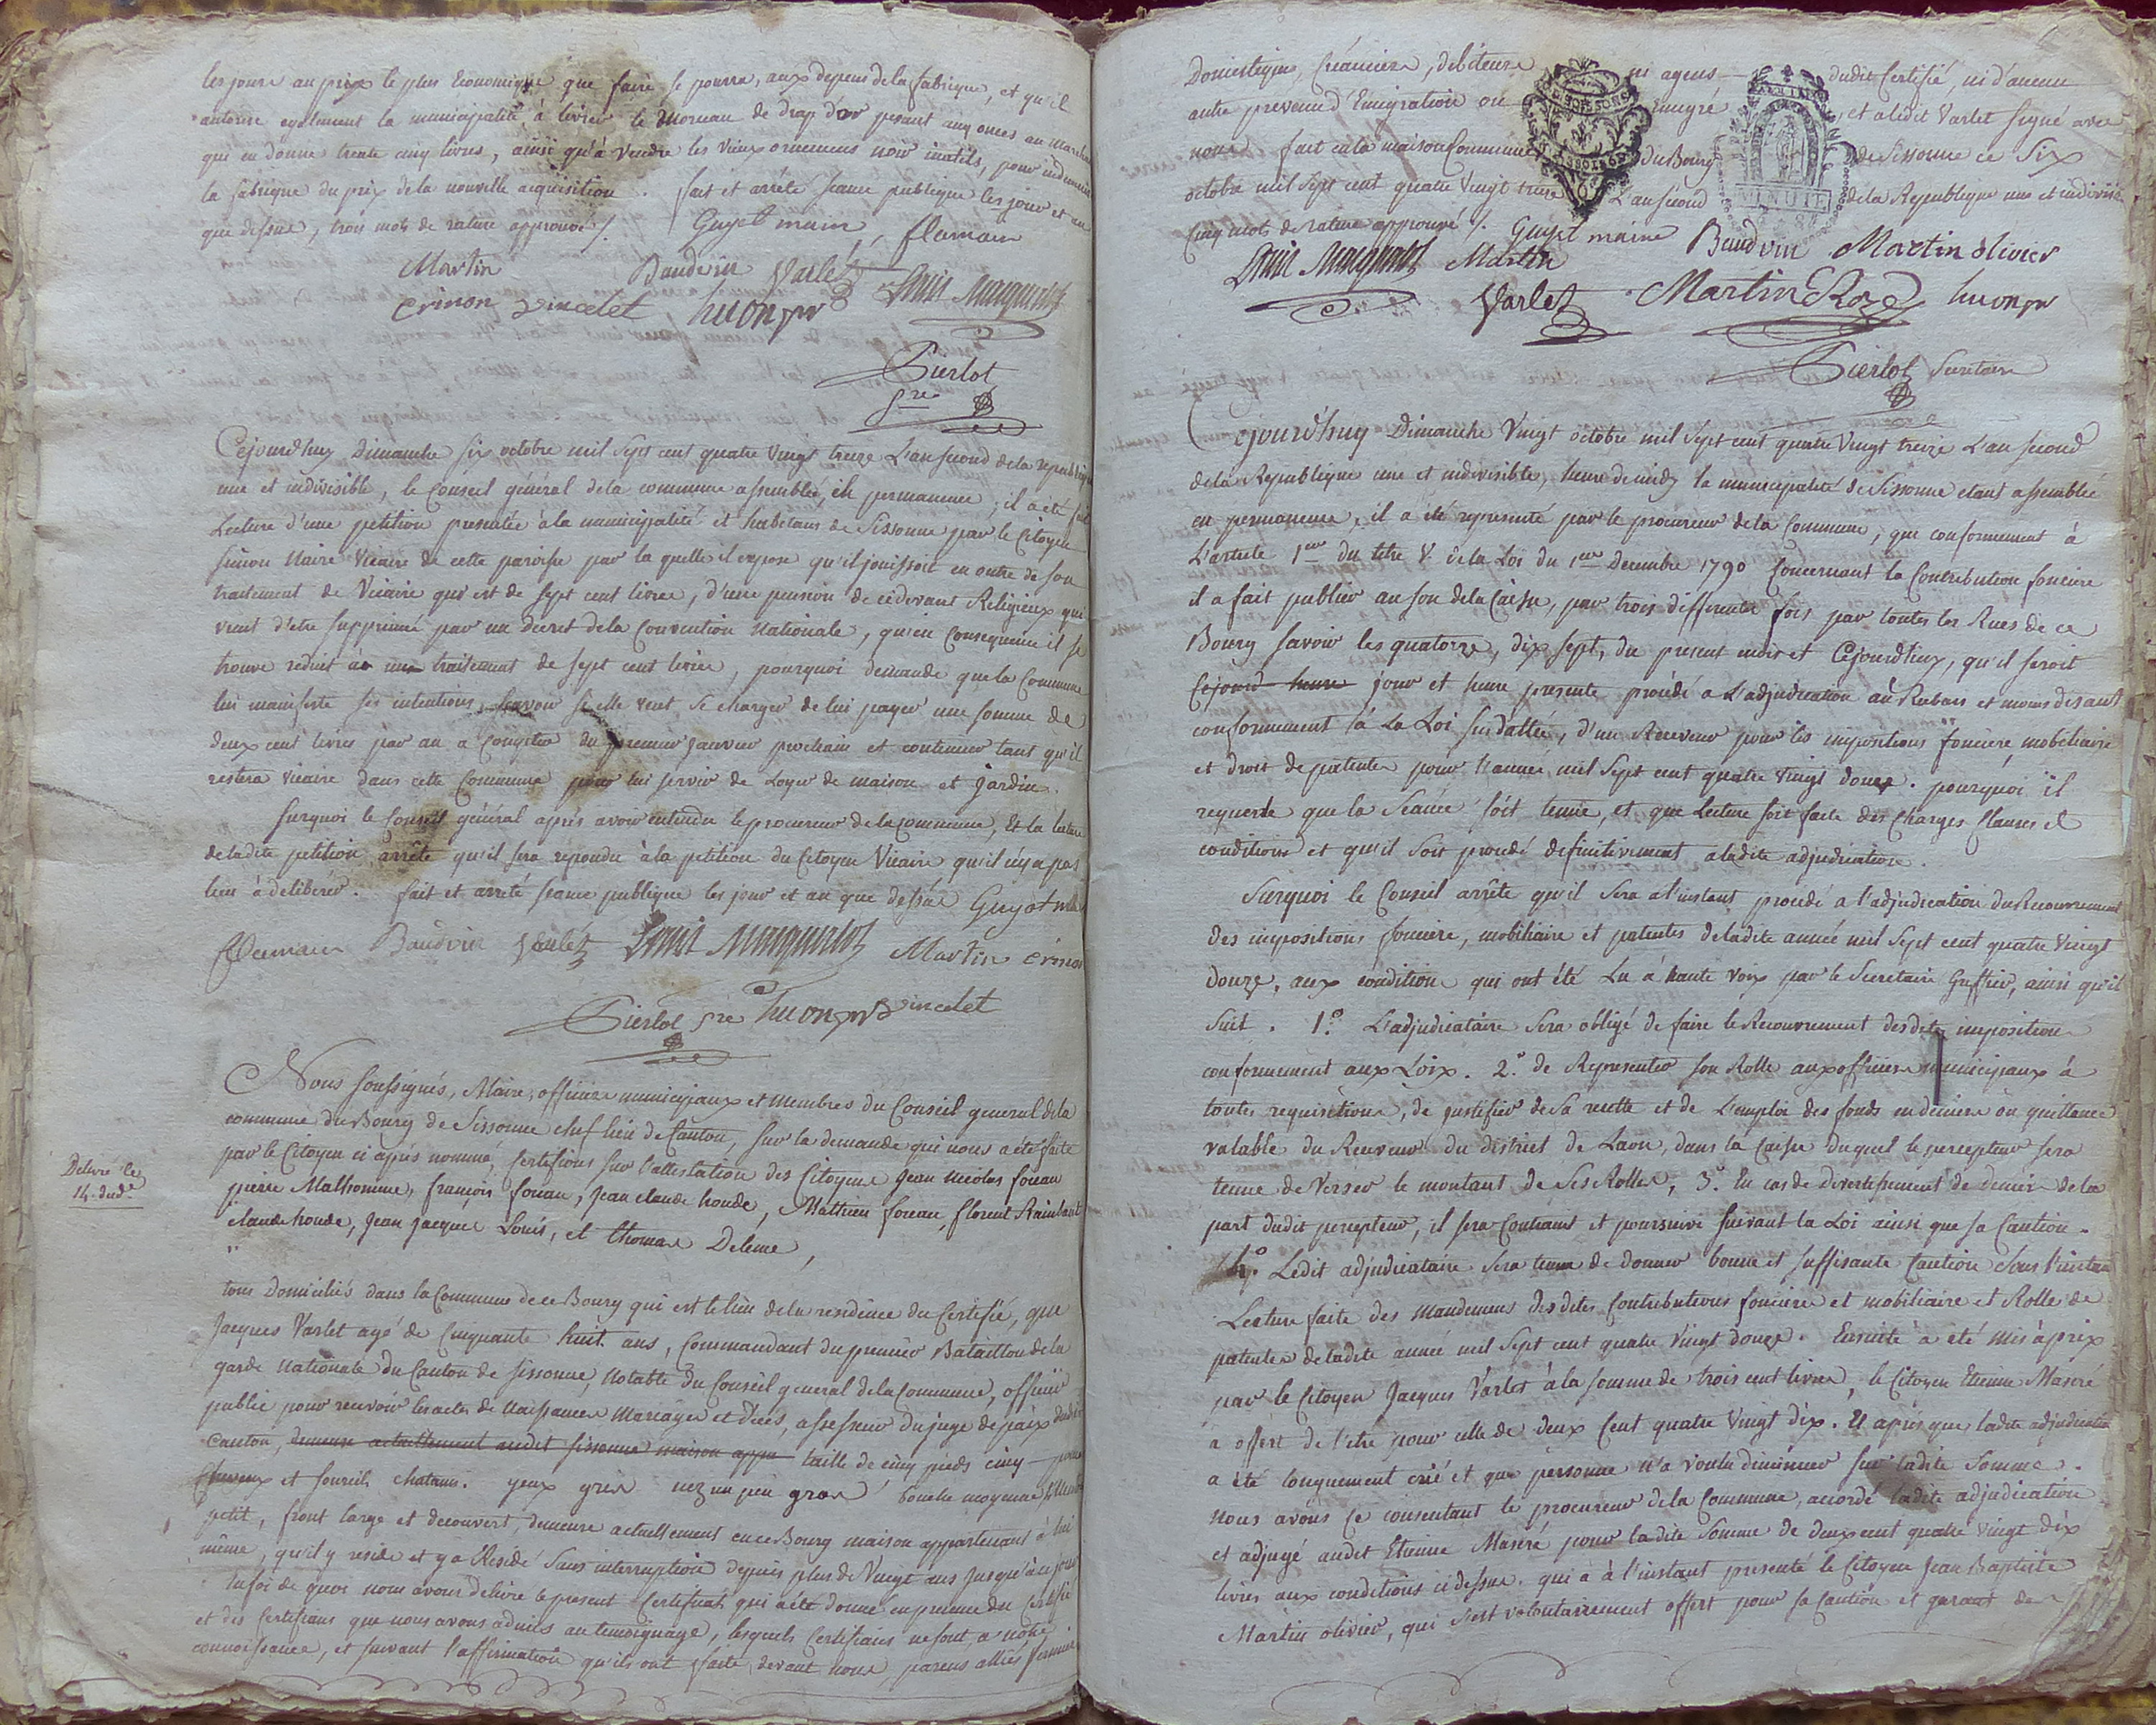 les jours au prix le plus Economique que faire se pourra, aux depens de la fabrique, et qu'il
autorise egalement la municipalité à livrer le Morceau de drap d'or pesant onces au marchand
qui en donne trente cinq livres, ainsi qu'à vendre les vieux ornemens noir inutils, pour indemniser
la fabrique du prix de la nouvelle acquisition. fait et arrêté seance publique les jour et an
que dessus, trois mots de rature approuvé /. Guyot maire flamain
Martin Baudvin Varlet Louis Marquelot
crinon Vincelet huon pr
Pierlot
Sre
Cejourd'huy Dimanche six octobre mil sept cent quatre vingt treize L'an second de la republique
une et indivisible, le Conseil général de la commune assemblée, en permanence, il a été fait
Lecture d'une petition presentée à la municipalité et habitans de Sissonne par le Citoyen
Simon Naire Vicaire de cette paroisse par la quelle il expose qu'il jouissoit en outre de son
traitement de Vicaire qui est de sept cent livres, d'une pension de cidevant Religieux qui
vient d'etre supprimé par un decret de la Convention Nationale, qu'en Consequence il se
trouve reduit à un traitement de sept cent livres, pourquoi demande que la Commune
lui manifeste ses intentions, sçavoir si elle veut se charger de lui payer une somme de
deux cent livres par an a compter du premier janvier prochain et continuer tant qu'il
restera vicaire dans cette Commune pour lui servir de Loyer de maison et jardin.
surquoi le Conseil général après avoir entendu le procureur de la commune, Et la lecture
de ladite petition arrête qu'il sera repondu à la petition du Citoyen Vicaire, qu'il n'y a pas
lieu à deliberer. fait et arreté seance publique les jour et an que dessus Guyot maire
flamain Baudvin Varlet Louis Marquelot Martin crinon
Pierlot sre huon pr Vincelet
Nous soussignés, Maire, officiers municipaux et membres du Conseil general de la
commune du Bourg de Sissonne chef lieu de Canton, sur la demande qui nous a été faite
par le Citoyen ci après nommé, Certifions sur l'attestation des Citoyens Jean Nicolas foucau
Delivré le
14. dud.
pierre Malhomme, françois foucau, Jean claude houde, Mathieu foucau, florent Raimbaut
claude houde, Jean Jacques Louis, et thomas Deleme,
tous Domiciliés dans la Commune de ce Bourg qui est le lieu de la residence du Certifié, que
Jacques Varlet agé de Cinquante huit ans, Commandant du premier Bataillon de la
garde nationale du Canton de Sissonne, Notable du Conseil general de la Commune, officier
public pour recevoir les actes de Naissances Mariages et Décés, assesseur du juge de paix dudit
Canton, demeure actuellement audit Sissonne maison appa taille de cinq pieds cinq pouces
Cheveux et sourcils chatains. yeux gris nez un peu gros bouche moyenne menton
petit, front large et decouvert, demeure actuellement en ce Bourg maison appartenant à lui
même, qu'il y reside et y a Residé Sans interruption depuis plus de Vingt ans jusqu'à ce jour
En foi de quoi nous avons delivré le present Certificat, qui a été donné en presence du Certifié
et des Certifians que nous avons admis au temoignage, lesquels Certifians ne sont, a notre
connoissance, et suivant l'affirmation qu'ils ont faite devant nous, parens alliés fermiers
Domestiques, Créanciers, debiteurs ni agens dudit Certifié, ni d'aucun
autre prevenu d'Emigration ou emigré, et a ledit Varlet signé avec
nous fait en la maison Commune du Bourg de Sissonne ce Six
octobre mil sept cent quatre vingt treize L'an second de la Republique une et indivisible
Cinq mots de rature approuvé /. Guyot maire Baudvin Martin olivier
MINUTE
Louis Marquelot Martin Varlet Martin Roze huon pr
Pierlot Secretaire
Cejourd'huy Dimanche Vingt octobre mil sept cent quatre vingt treize L'an second
de la Republique une et indivisible, heure de midy la municipalité de Sissonne etant assemblée
en permanence, il a été representé par le procureur de la Commune, que conformement à
L'article 1er du titre V de la Loi du 1er Decembre 1790 Concernant la Contribution fonciere
il a fait publier au son de la Caisse, par trois differentes fois par toutes les Rues de ce
Bourg savoir les quatorze, dix sept, du present mois et Cejourd'huy, qu'il seroit
Cejourd heure jour et heure presente procédé a L'adjudication au Rabais et moins disant
conformement à La Loi susdattée, d'un Receveur pour les impositions fonciere, mobiliaire
et droit de patentes pour l'année mil sept cent quatre vingt douze. pourquoi il
requerde que la Seance soit tenue, et que Lecture soit faite des Charges Clauses et
conditions et qu'il soit procedé definitivement a ladite adjudication.
Surquoi le Conseil arrête qu'il sera a l'instant procedé a l'adjudication du Recouvrement
des impositions fonciere, mobiliaire et patentes de ladite année mil sept cent quatre vingt
douze, aux conditions qui ont été Lu à haute voix par le Secretaire Greffier, ainsi qu'il
suit. 1.o L'adjudicataire sera obligé de faire le Recouvrement desdites impositions
conformement aux Loix. 2.o de Representer son Rolle aux officiers municipaux à
toutes requisitions, de justifier de sa recette et de L'emploi des fonds en deniers ou quittance
valable du Receveur du district de Laon, dans la Caisse duquel le percepteur sera
tenue de Verser le montant de ses Rolles, 3.o En cas de divertissement de deniers de la
part dudit percepteur, il sera Contraint et poursuivi suivant la Loi ainsi que sa Caution.
4.o Ledit adjudicataire sera tenu de donner bonne et suffisante Caution Sous l'instant
Lecture faite des mandemens desdites Contributions fonciere et mobiliaire et Rolle de
patentes de ladite année mil sept cent quatre vingt douze. Ensuite a été mis à prix
par le Citoyen Jacques Varlet à la somme de trois cent livres, le Citoyen Etienne Maséré
a offert de l'etre pour celle de deux Cent quatre vingt dix. Et après que ladite adjudication
a été longuement crié et que personne n'a voulu diminuer sur ladite somme.
nous avons ce consentant le procureur de la Commune, accordé ladite adjudication
et adjugé audit Etienne Maséré pour ladite somme de deux cent quatre vingt dix
livres aux conditions ci dessus. qui a à l'instant presenté le Citoyen Jean Baptiste
Martin olivier, qui s'est volontairement offert pour sa Caution et garant de